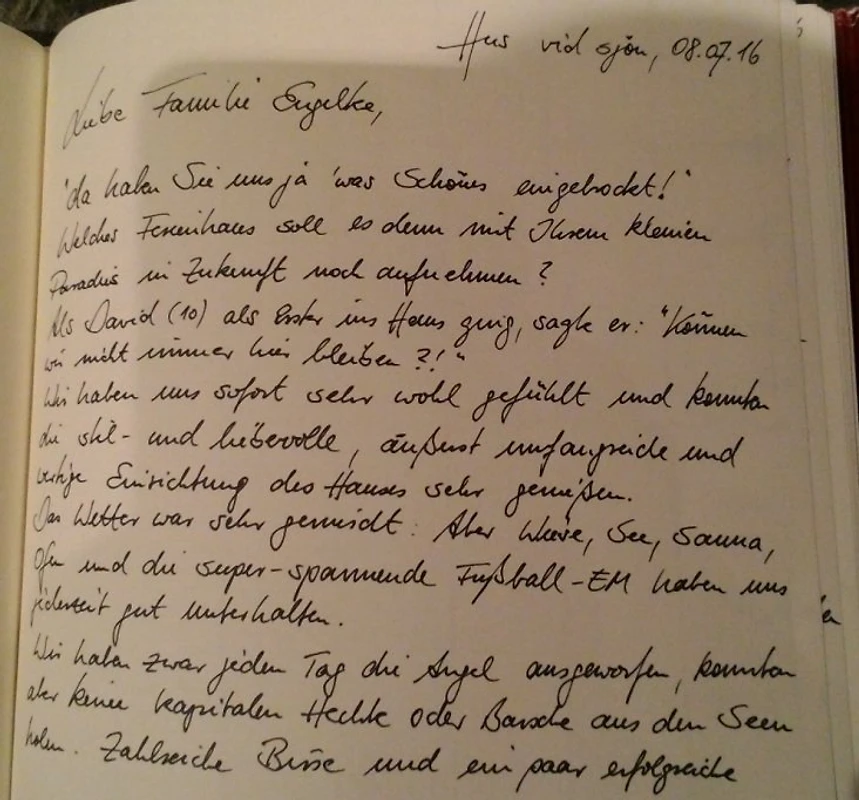 Hus vid sjön, 08.07.16
Liebe Familie Engelke,
"da haben Sie uns ja 'was Schönes eingebrockt!"
Welches Ferienhaus soll es denn mit Ihrem kleinen
Paradies in Zukunft noch aufnehmen?
Als David (10) als Erster ins Haus ging, sagte er: "Können
wir nicht immer hier bleiben?!"
Wir haben uns sofort sehr wohl gefühlt und konnten
die stil- und liebevolle, äußerst umfangreiche und
wertige Einrichtung des Hauses sehr genießen.
Das Wetter war sehr gemischt: Aber Wiese, See, Sauna,
Ofen und die super-spannende Fußball-EM haben uns
jederzeit gut unterhalten.
Wir haben zwar jeden Tag die Angel ausgeworfen, konnten
aber keine kapitalen Hechte oder Barsche aus den Seen
holen. Zahlreiche Bisse und ein paar erfolgreiche